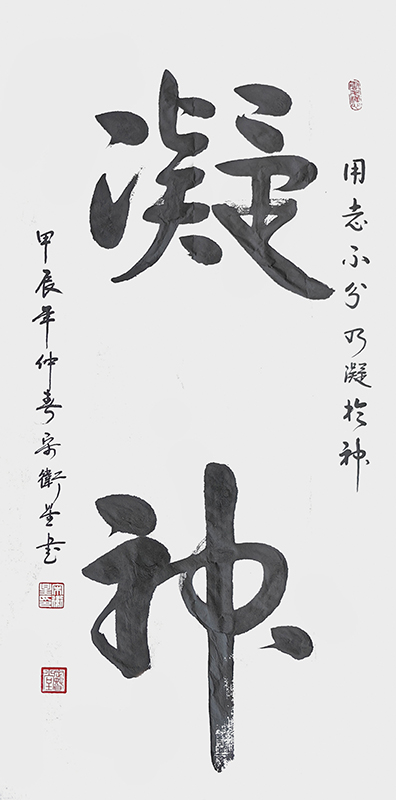 用志不分乃凝於神
凝神
甲辰年仲春宗衛星书